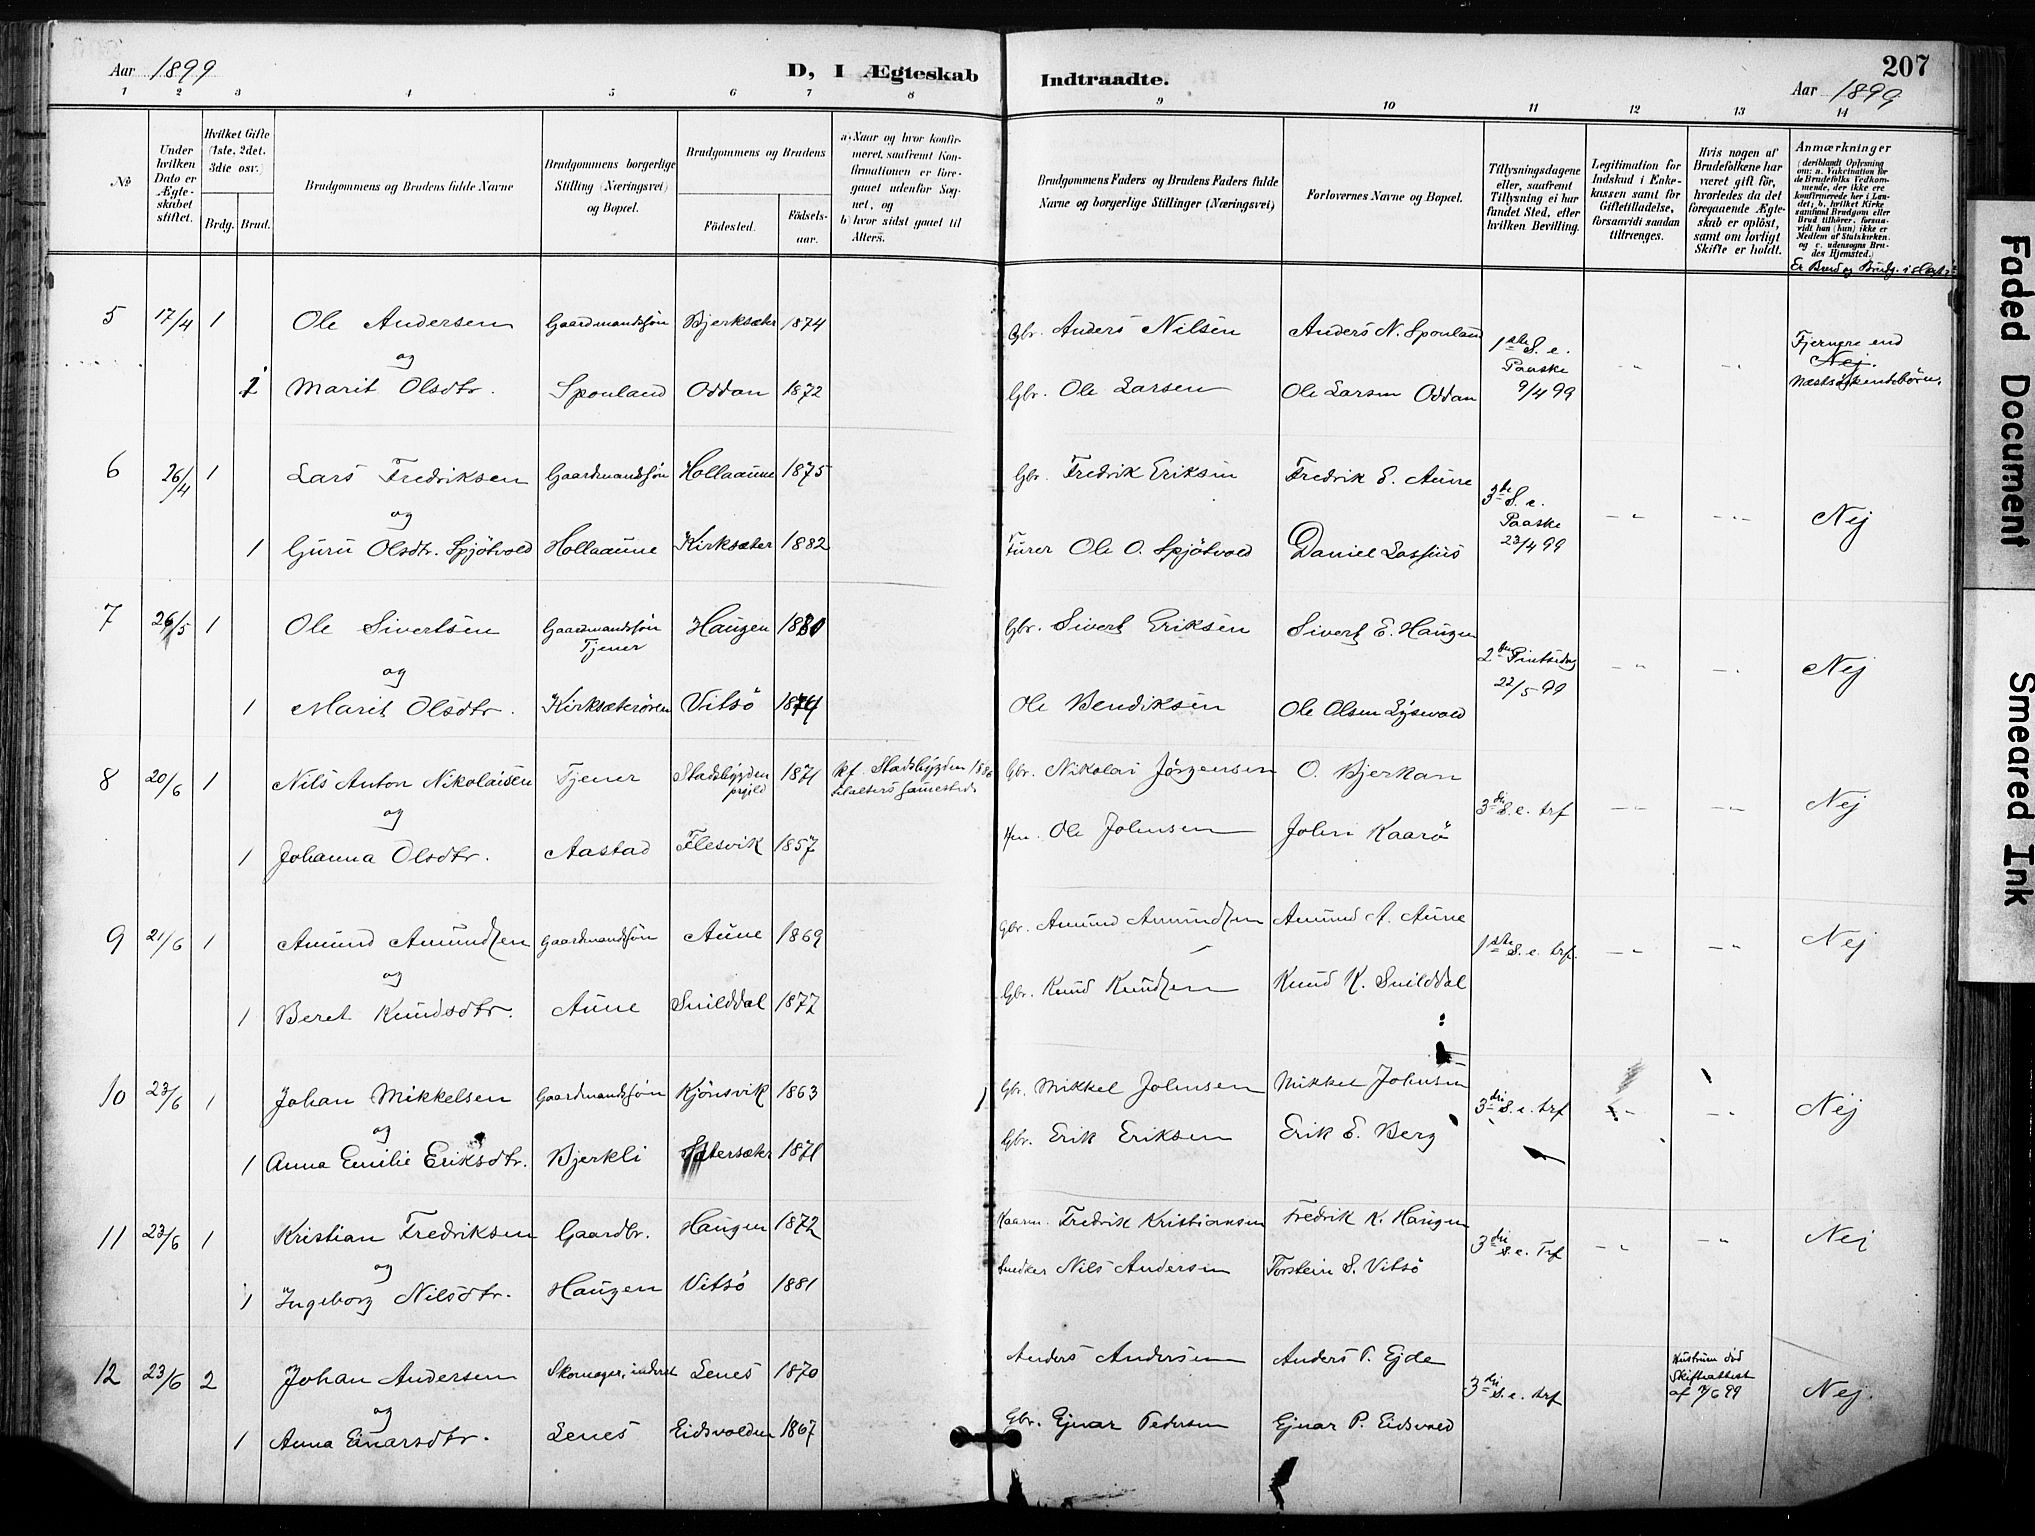 Aar 1899 D, I Ægteskab Indtraadte. 207
Aar 1899
1 2 3 4 5 6 7 8 9 10 11 12 13 14
No
Under hvilken Dato er Ægteskabet stiftet.
Hvilket Gifte (1ste, 2det, 3die osv.)
Brdg. Brud.
Brudgommens og Brudens fulde Navne
Brudgommens borgerlige Stilling (Næringsvei) og Bopæl.
Brudgommens og Brudens
Födested. Födselsaar.
a) Naar og hvor konfirmeret, saafremt Konfirmationen er foregaaet udenfor Sognet, og
b) hvor sidst gaaet til Alters.
Brudgommens Faders og Brudens Faders fulde Navne og borgerlige Stillinger (Næringsvei)
Forlovernes Navne og Bopæl.
Tillysningsdagene eller, saafremt Tillysning ei har fundet Sted, efter hvilken Bevilling.
Legitimation for Indskud i Enkekassen samt for Giftetilladelse, forsaavidt saadan tiltrænges.
Hvis nogen af Brudefolkene har været gift för, hvorledes da det foregaaende Ægteskab er oplöst, samt om lovligt Skifte er holdt.
Anmærkninger
(deriblandt Oplysning om: a. Vakcination för de Brudefolks Vedkommende, der ikke ere konfirmerede her i Landet; b. hvilket Kirkesamfund Brudgom eller Brud tilhörer, forsaavidt han (hun) ikke er Medlem af Statskirken. og c. udensogns Brudes Hjemsted.)
Er Brud og Brudg. i Slægt?
5 17/4 1 Ole Andersen Gaardmandssön Bjerksæter 1874 Gbr. Anders Nilsen Anders N. Sponland 1ste S. e. Paaske 9/4 99 Fjernere end Nej. Næstsöskendebörn.
og
1 Marit Olsdtr. Sponland Oddan 1872 Gbr. Ole Larsen Ole Larsen Oddan
6 26/4 1 Lars Fredriksen Gaardmandssön Hollaaune 1875 Gbr. Fredrik Eriksen Fredrik E. Aune 3die S. e. Paaske 23/4 99 Nej
og
1 Guru Olsdtr. Spjötvold Hollaaune Kirksæter 1882 Furer Ole O. Spjötvold Daniel Lossius
7 26/5 1 Ole Sivertsen Gaardmandssön Tjener Haugen 1880 Gbr. Sivert Eriksen Sivert E. Haugen 2den Pintsedag 22/5 99 Nej
og
1 Marit Olsdtr. Kirksæterören Vitsö 1874 Ole Bendiksen Ole Olsen Lysevold
8 20/6 1 Nils Anton Nikolaisen Tjener Stadsbygden prgjld 1871 kf. Stadsbygden 1886 tilalters sammesteds Gbr. Nikolai Jörgensen O. Bjerkan 3die S. e. trf Nej
og
1 Johanna Olsdtr. Aastad Flesvik 1857 Hm. Ole Johnsen John Kaarö
9 21/6 1 Amund Amundsen Gaardmandssön Aune 1869 Gbr. Amund Amundsen Amund A. Aune 1ste S. e. trf. Nej
og
1 Beret Knudsdtr. Aune Snilddal 1877 Gbr. Knud Knudsen Knud K. Snilddal
10 23/6 1 Johan Mikkelsen Gaardmandssön Kjönsvik 1863 Gbr. Mikkel Johnsen Mikkel Johnsen 3die S. e. trf Nej
og
1 Anna Emilie Eriksdtr. Bjerkli 1871 Gbr. Erik Eriksen Erik E. Berg
11 23/6 1 Kristian Fredriksen Gaardbr. Haugen 1872 Kaarm. Fredrik Kristiansen Fredrik K. Haugen 3die S. e. Trf Nej
og
1 Ingeborg Nilsdtr. Haugen Vitsö 1881 Snedker Nils Andersen Torstein S. Vitsö
12 23/6 2 Johan Andersen Skomager, inderst Lenes 1870 Anders Andersen Anders P. Ejde 3die S. e. trf Hustruen död Skifteattest af 7/6 99 Nej.
og
1 Anna Einarsdtr. Lenes Eidsvolden 1867 Gbr. Ejnar Pedersen Ejnar P. Eidsvold
Faded Document
Smeared Ink